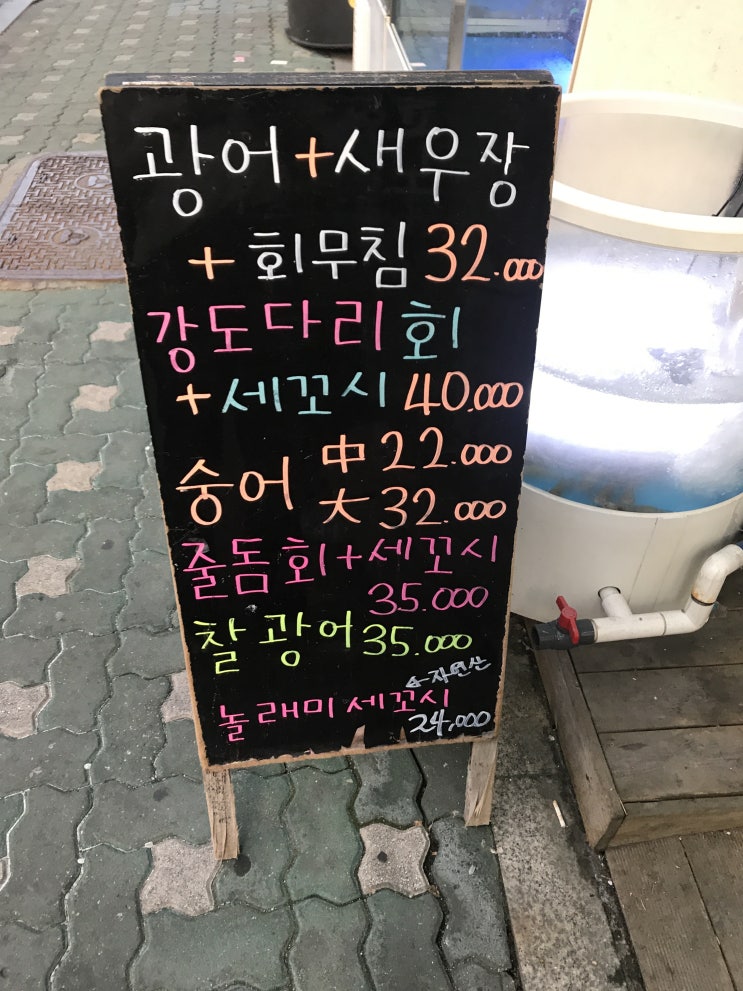 광어+새우장
+ 회무침 32.000
강도다리회
+세꼬시 40.000
숭어 中 22.000
大 32.000
줄돔회+세꼬시
35.000
찰광어 35.000
자연산
놀래미세꼬시
24,000